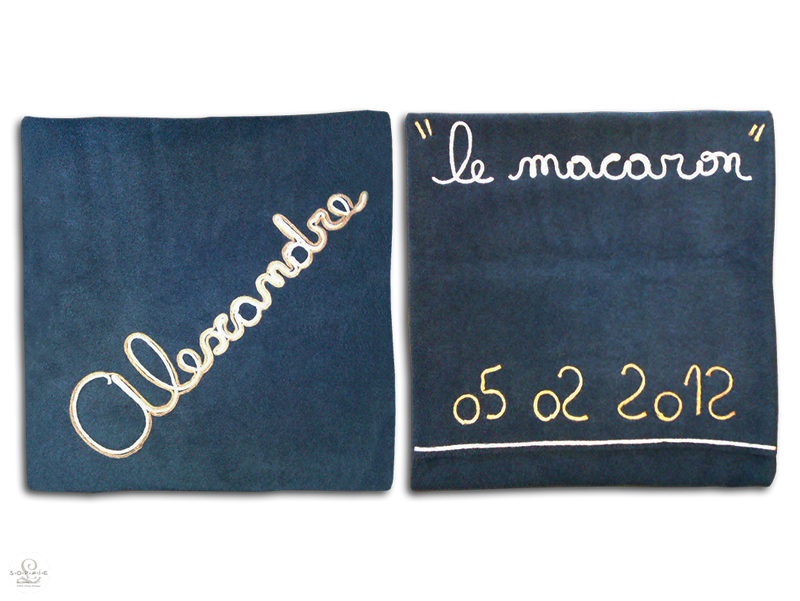 Alexandre
"le macaron"
05 02 2012